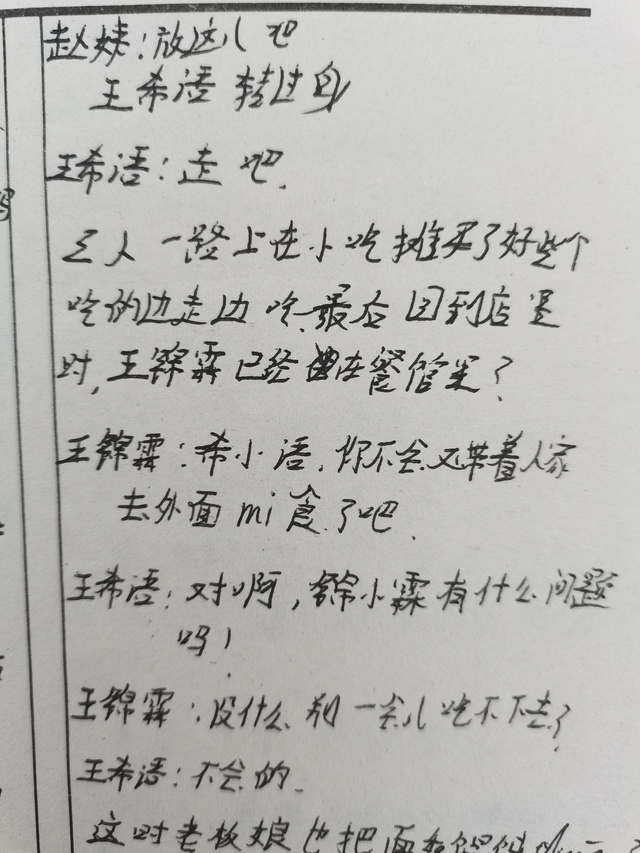 赵姨：放这儿吧
王希语转过身
王希语：走吧.
三人一路上在小吃摊买了好些个
吃的边走边吃.最后回到店里
时,王锦霖已经在餐馆里了
王锦霖：希小语,你不会又带着人家
去外面mi食了吧.
王希语：对啊,锦小霖有什么问题
吗!
王锦霖：没什么别一会儿吃不下去了
王希语：不会的.
这时老板娘也把面和